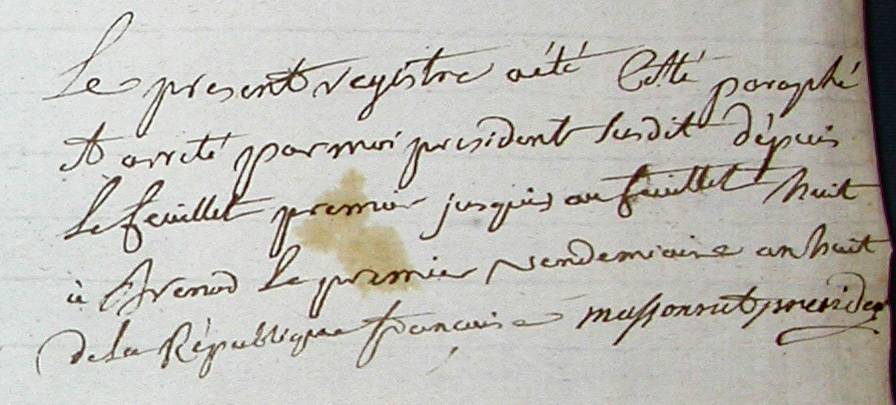 Le present registre a été Cotté paraphé
et arreté par moi president susdit dépuis
le feuillet premier jusquis au feuillet huit
à Brenod le premier vendemiaire an huit
de la République francaise massonnet president